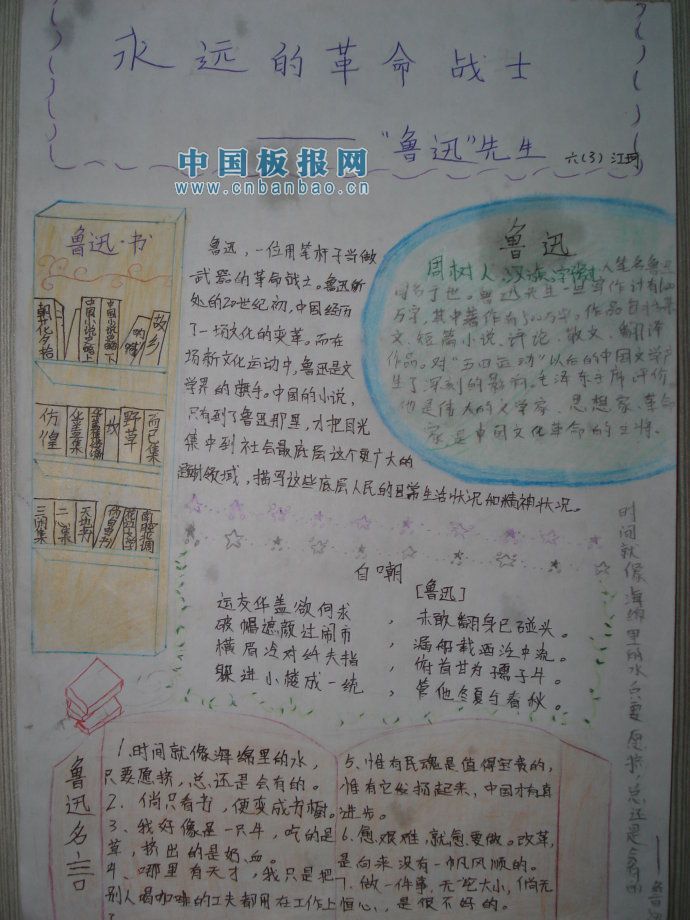 永远的革命战士
——"鲁迅"先生 六(3) 江珂
中国板报网
www.cnbanbao.cn
鲁迅·书
朝花夕拾
中国小说史略上
中国小说史略下
呐喊
故乡
彷徨
华盖集
华盖集续编
坟
野草
而已集
三闲集
二心集
伪自由书
南腔北调
鲁迅,一位用笔杆子当做
武器的革命战士。鲁迅所
处的20世纪初,中国经历
了一场文化的变革。而在
场新文化运动中,鲁迅是文
学界的旗手。中国的小说,
只有到了鲁迅那里,才把目光
集中到社会最底层这个更广大的
领域,描写这些底层人民的日常生活状况和精神状况。
鲁迅
周树人,汉族,字豫才,以笔名鲁迅
闻名于世。鲁迅先生一生写作计有600
万字,其中著作有500万字。作品包括杂
文、短篇小说、评论、散文、翻译
作品。对"五四运动"以后的中国文学产
生了深刻的影响。毛泽东主席评价
他是伟大的文学家、思想家、革命
家,是中国文化革命的主将。
自嘲
[鲁迅]
运交华盖欲何求,未敢翻身已碰头。
破帽遮颜过闹市,漏船载酒泛中流。
横眉冷对千夫指,俯首甘为孺子牛。
躲进小楼成一统,管他冬夏与春秋。
时间就像海绵里的水只要愿挤,总还是会有的
——鲁迅
鲁迅名言
1、时间就像海绵里的水,
只要愿挤,总还是会有的。
2、倘只看书,便变成书橱。
3、我好像是一只牛,吃的是
草,挤出的是奶、血。
4、哪里有天才,我只是把
别人喝咖啡的工夫都用在工作上
5、惟有民魂是值得宝贵的,
惟有它发扬起来,中国才有真
进步。
6、愈艰难,就愈要做。改革,
是向来没有一帆风顺的。
7、做一件事,无论大小,倘无
恒心,是很不好的。